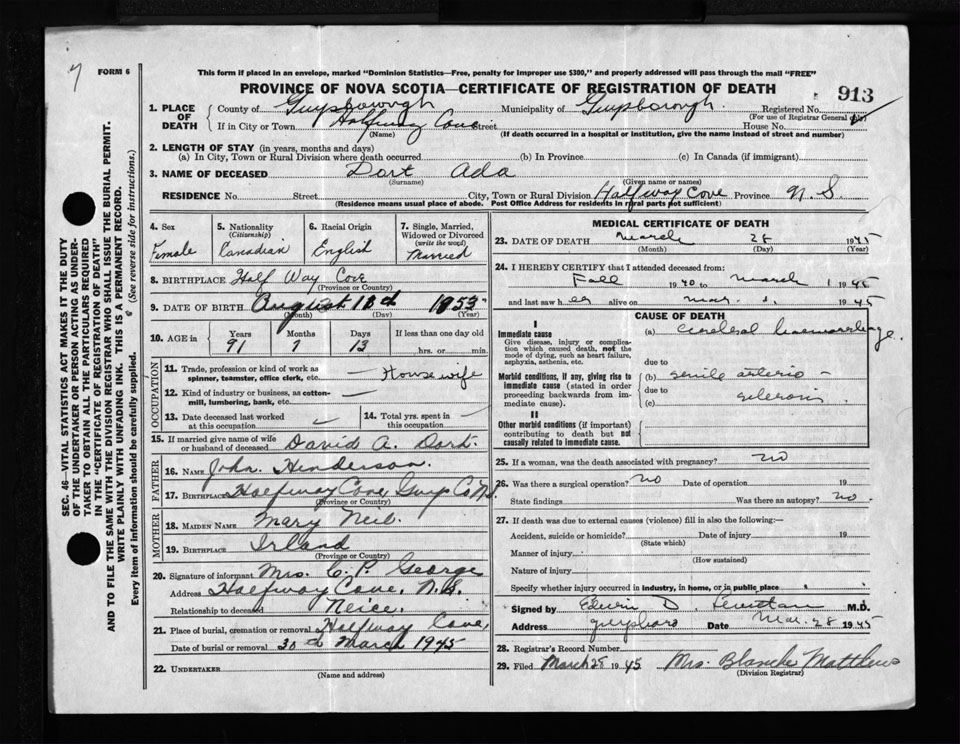 7
FORM 6
This form if placed in an envelope, marked "Dominion Statistics—Free, penalty for improper use $300," and properly addressed will pass through the mail "FREE"
PROVINCE OF NOVA SCOTIA—CERTIFICATE OF REGISTRATION OF DEATH
913
1. PLACE OF DEATH
County of Guysborough Municipality of Guysborough. Registered No.
(For use of Registrar General only)
If in City or Town Halfway Cove Street House No.
(Name) (If death occurred in a hospital or institution, give the name instead of street and number)
2. LENGTH OF STAY (in years, months and days)
(a) In City, Town or Rural Division where death occurred (b) In Province (c) In Canada (if immigrant)
3. NAME OF DECEASED Dort Ada
(Surname) (Given name or names)
RESIDENCE No. Street City, Town or Rural Division Halfway Cove Province N.S.
(Residence means usual place of abode. Post Office Address for residents in rural parts not sufficient)
4. Sex
Female
5. Nationality
(Citizenship)
Canadian
6. Racial Origin
English
7. Single, Married, Widowed or Divorced
(write the word)
Married
8. BIRTHPLACE Half Way Cove
(Province or Country)
9. DATE OF BIRTH August 1853
(Month) (Day) (Year)
10. AGE in
Years Months Days If less than one day old
91 7 13 hrs. or min.
OCCUPATION
11. Trade, profession or kind of work as spinner, teamster, office clerk, etc. — Housewife
12. Kind of industry or business, as cotton-mill, lumbering, bank, etc. —
13. Date deceased last worked at this occupation —
14. Total yrs. spent in this occupation —
15. If married give name of wife or husband of deceased David A. Dort.
FATHER
16. NAME John Henderson.
17. BIRTHPLACE Halfway Cove Guys Co N.S.
(Province or Country)
MOTHER
18. MAIDEN NAME Mary Neil.
19. BIRTHPLACE Irland
(Province or Country)
20. Signature of informant Mrs. C. P. George
Address Halfway Cove, N.S.
Relationship to deceased Neice.
21. Place of burial, cremation or removal Halfway Cove,
Date of burial or removal 30th March 1945
22. UNDERTAKER
(Name and address)
MEDICAL CERTIFICATE OF DEATH
23. DATE OF DEATH March 28 1945
(Month) (Day) (Year)
24. I HEREBY CERTIFY that I attended deceased from:
Fall 1940 to March 1 1945
and last saw her alive on Mar. 1. 1945
CAUSE OF DEATH
I
Immediate cause (a) Cerebral haemorrhage.
Give disease, injury or complication which caused death, not the mode of dying, such as heart failure, asphyxia, asthenia, etc. due to
Morbid conditions, if any, giving rise to immediate cause (stated in order proceeding backwards from immediate cause). (b) senile arterio-
due to sclerosis
(c)
II
Other morbid conditions (if important) contributing to death but not causally related to immediate cause.
25. If a woman, was the death associated with pregnancy? no
26. Was there a surgical operation? no Date of operation 19
State findings Was there an autopsy? no.
27. If death was due to external causes (violence) fill in also the following:—
Accident, suicide or homicide? Date of injury 19
(State which)
Manner of injury
(How sustained)
Nature of injury
Specify whether injury occurred in industry, in home, or in public place
Signed by Edwin D. M.D.
Address Guysboro Date Mar. 28 1945
28. Registrar's Record Number
29. Filed March 28 1945 Mrs. Blanche Matthews
(Division Registrar)
SEC. 46—VITAL STATISTICS ACT MAKES IT THE DUTY
OF THE UNDERTAKER OR PERSON ACTING AS UNDERTAKER TO OBTAIN ALL THE PARTICULARS REQUIRED
IN THE "CERTIFICATE OF REGISTRATION OF DEATH"
AND TO FILE THE SAME WITH THE DIVISION REGISTRAR WHO SHALL ISSUE THE BURIAL PERMIT.
WRITE PLAINLY WITH UNFADING INK. THIS IS A PERMANENT RECORD.
Every item of information should be carefully supplied. (See reverse side for instructions.)